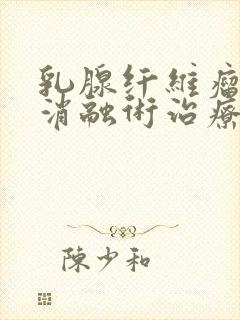 乳腺纤維瘤
消融術治療
陳少和